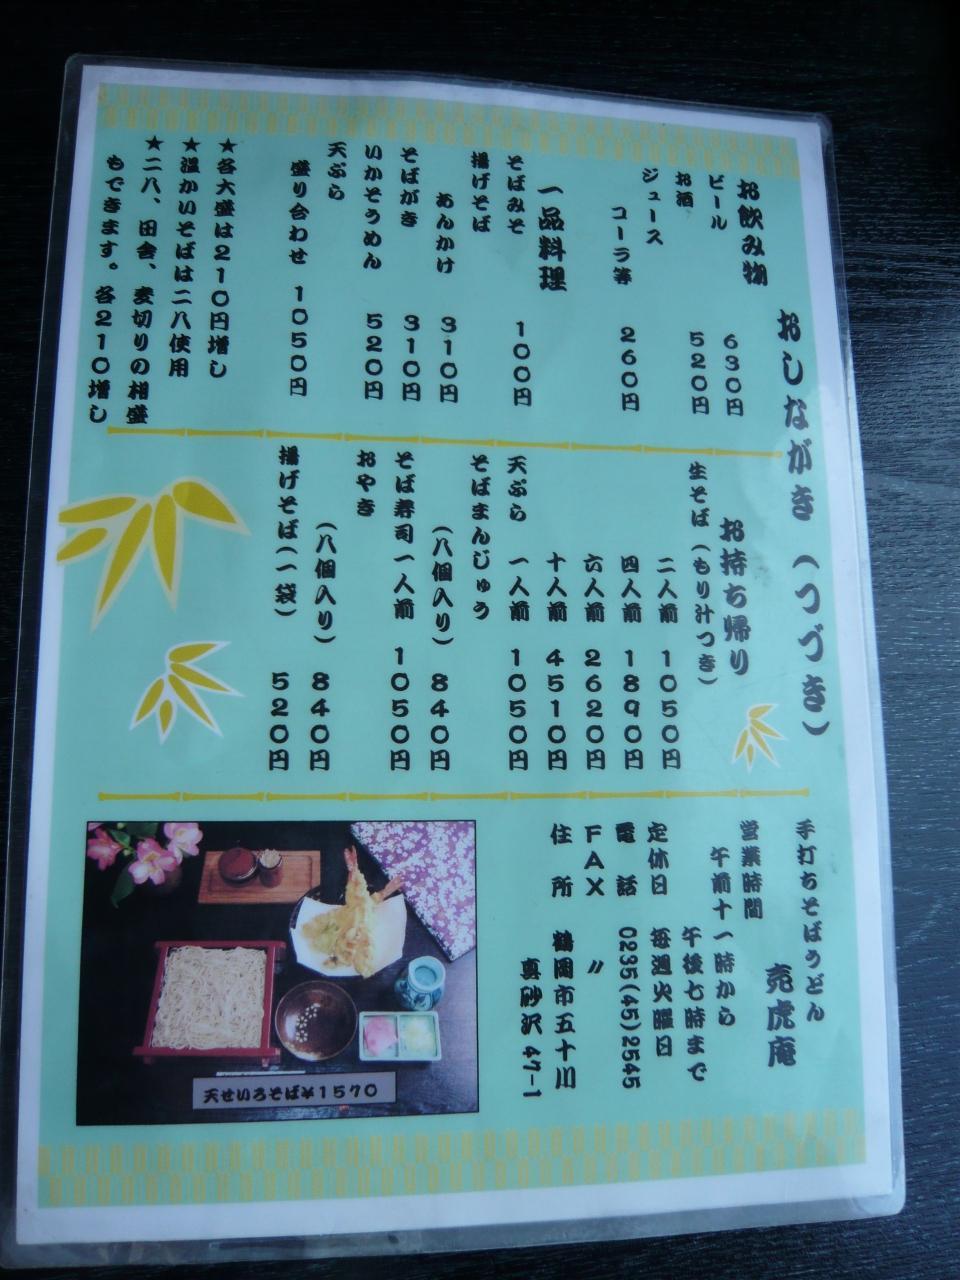 おしながき（つづき）
お飲み物
ビール 630円
お酒 520円
ジュース
コーラ等 260円
一品料理
そばみそ 100円
揚げそば
あんかけ 310円
そばがき 310円
いかそうめん 520円
天ぷら
盛り合わせ 1050円
★各大盛は210円増し
★温かいそばは二八使用
★二八、田舎、麦切りの相盛
もできます。各210増し
お持ち帰り
生そば（もり汁つき）
二人前 1050円
四人前 1890円
六人前 2620円
十人前 4510円
天ぷら 一人前 1050円
そばまんじゅう
（八個入り） 840円
そば寿司一人前 1050円
おやき
（八個入り） 840円
揚げそば（一袋） 520円
手打ちそばうどん
尭虎庵
営業時間
午前十一時から
午後七時まで
定休日 毎週火曜日
電話 0235(45)2545
FAX 〃
住所 鶴岡市五十川
真砂沢 47-1
天せいろそば¥1570